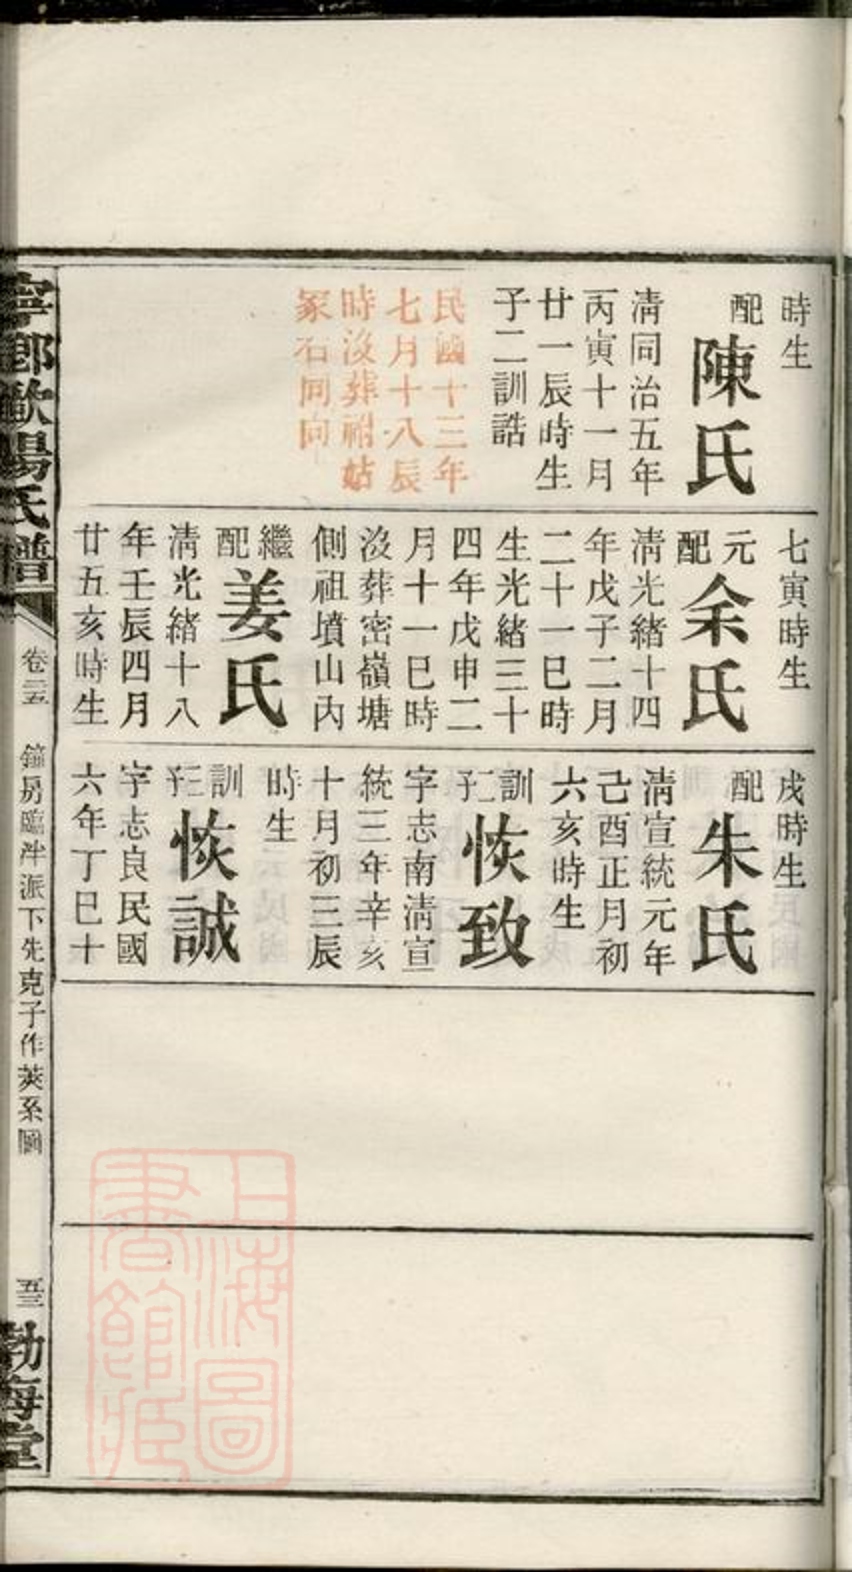 時生
配
陳氏
清同治五年
丙寅十一月
廿一辰時生
子二訓誥
民國十三年
七月十八辰
時沒葬祔姑
冢右同向
七寅時生
元配
余氏
清光緒十四
年戊子二月
二十一巳時
生光緒三十
四年戊申二
月十一巳時
沒葬密嶺塘
側祖墳山內
繼配
姜氏
清光緒十八
年壬辰四月
廿五亥時生
戌時生
配
朱氏
清宣統元年
己酉正月初
六亥時生
訓二子
恢致
字志南清宣
統三年辛亥
十月初三辰
時生
訓三子
恢誠
字志良民國
六年丁巳十
寧鄉歐陽氏譜
卷二五
派下先克子作莢系圖
五三
勃海堂
上海圖書館藏